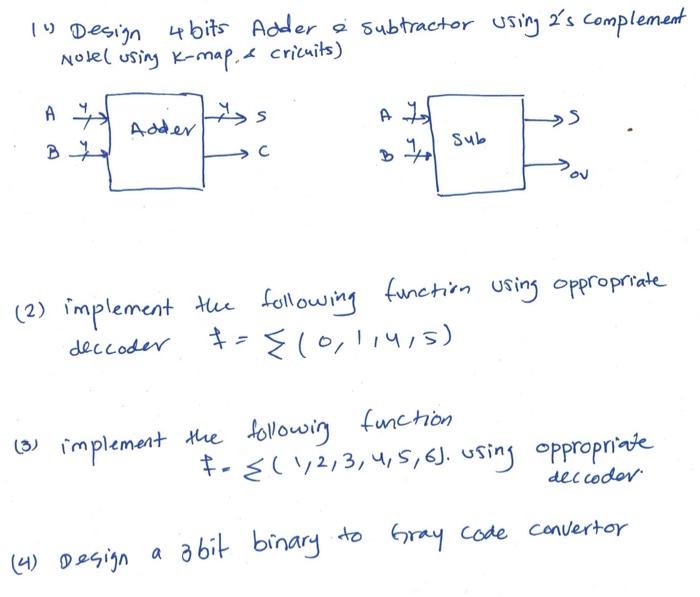 1() Design 4bits Adder & Subtractor using 2's Complement
Note( using K-map, & cricuits)
A 4 Adder 4 S
B 4 C
A 4 Sub S
B 4 OV
(2) implement the following function using oppropriate
deccoder f = Σ(0,1,4,5)
(3) implement the following function
f = Σ(1,2,3,4,5,6). using oppropriate
deccoder.
(4) Design a 3bit binary to Gray code convertor